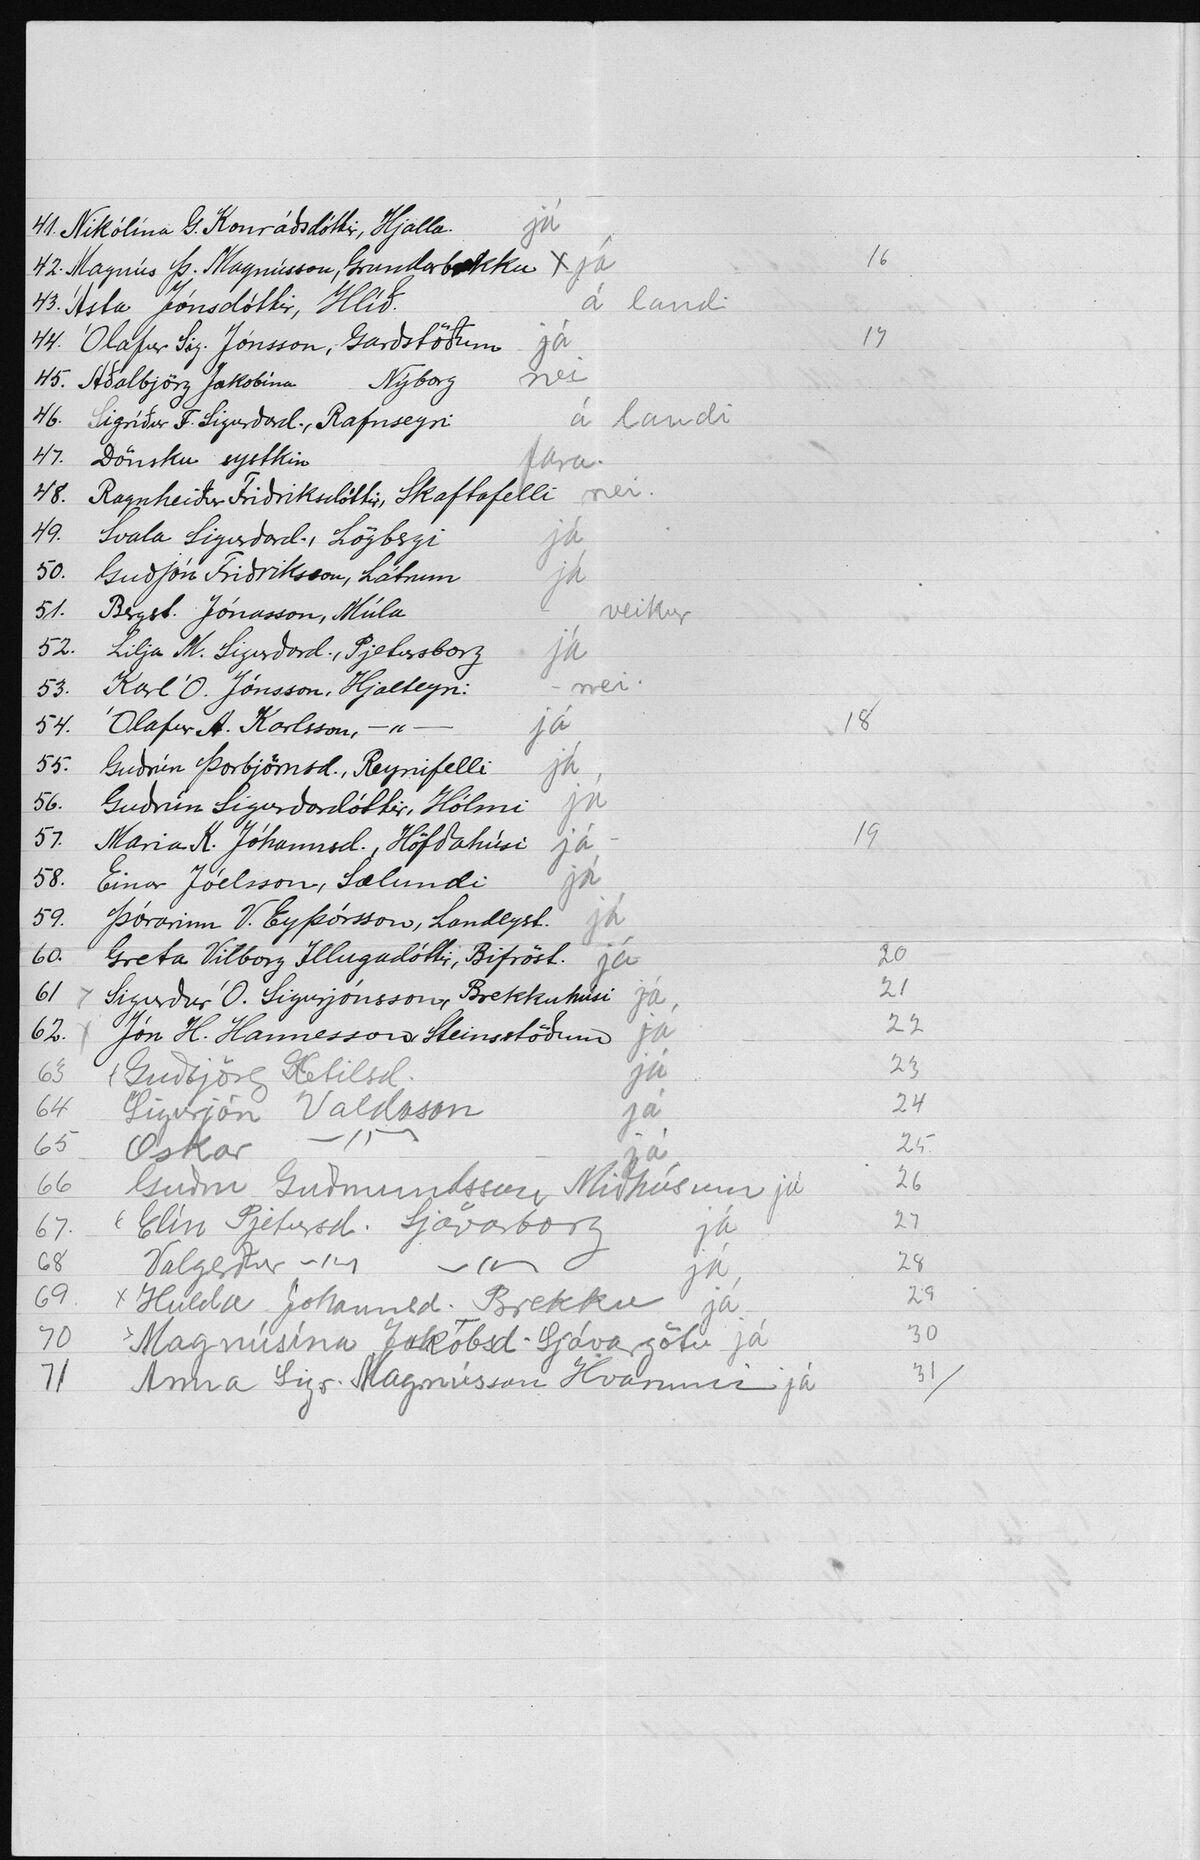 41. Nikólína G. Konráðsdóttir, Hjalla. já
42. Magnús Þ. Magnússon, Grundarbrekku X já 16
43. Ásta Jónsdóttir, Hlíð. á landi
44. Ólafur Sig. Jónsson, Garðstöðum já 17
45. Aðalbjörg Jakobína Nýborg nei
46. Sigríður F. Sigurðard., Rafnseyri á landi
47. Dönsku systkin fara.
48. Ragnheiður Friðriksdóttir, Skaftafelli nei.
49. Svala Sigurðard., Lögbergi já
50. Guðjón Friðriksson, Látrum já
51. Bergst. Jónasson, Múla veikur
52. Lilja M. Sigurðard., Pjetursborg já
53. Karl Ó. Jónsson, Hjalteyri - nei.
54. Ólafur A. Karlsson, —"— já 18
55. Guðrún Þorbjörnsd., Reynifelli já
56. Guðrún Sigurðardóttir, Hólmi já
57. Maria K. Jóhannsd., Höfðahúsi já 19
58. Einar Jóelsson, Sælundi já
59. Þórarinn V. Eyþórsson, Landlyst. já
60. Greta Vilborg Illugadóttir, Bifröst. já 20
61 Sigurður Ó. Sigurjónsson, Brekkuhúsi já 21
62. x Jón H. Hannesson, Steinsstöðum já 22
63 Guðbjörg Ketilsd. já 23
64 Sigurjón Valdason já 24
65 Oskar —"— já 25
66 Guðm Guðmundsson, Miðhúsum já 26
67. Elín Pjetursd. Sjávarborg já 27
68 Valgerður —"— —"— já 28
69 x Hulda Johannsd. Brekku já 29
70 Magnúsína Jakobsd. Sjávargötu já 30
71 Anna Sigr. Magnússon Hvammi já 31/